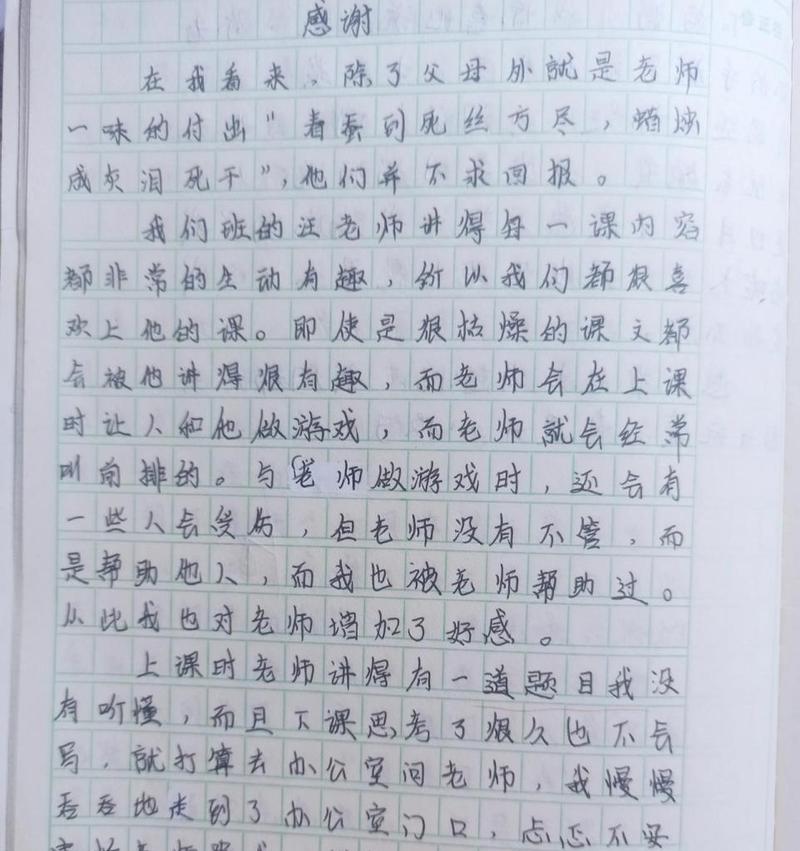 感谢
在我看来，除了父母外就是老师
一味的付出"春蚕到死丝方尽，蜡烛
成灰泪死干"，他们并不求回报。
我们班的汪老师讲得每一课内容
都非常的生动有趣，所以我们都很喜
欢上他的课。即使是狠枯燥的课文都
会被他讲得狠有趣，而老师会在上课
时让人和他做游戏，而老师就会经常
叫前排的。与老师做游戏时，还会有
一些人会受伤，但老师没有不管，而
是帮助他人，而我也被老师帮助过。
从此我也对老师增加了好感。
上课时老师讲得有一道题目我没
有听懂，而且下课思考了狠久也不会
写，就打算去办公室问老师，我慢慢
吞吞地走到了办公室门口，忐忑不安